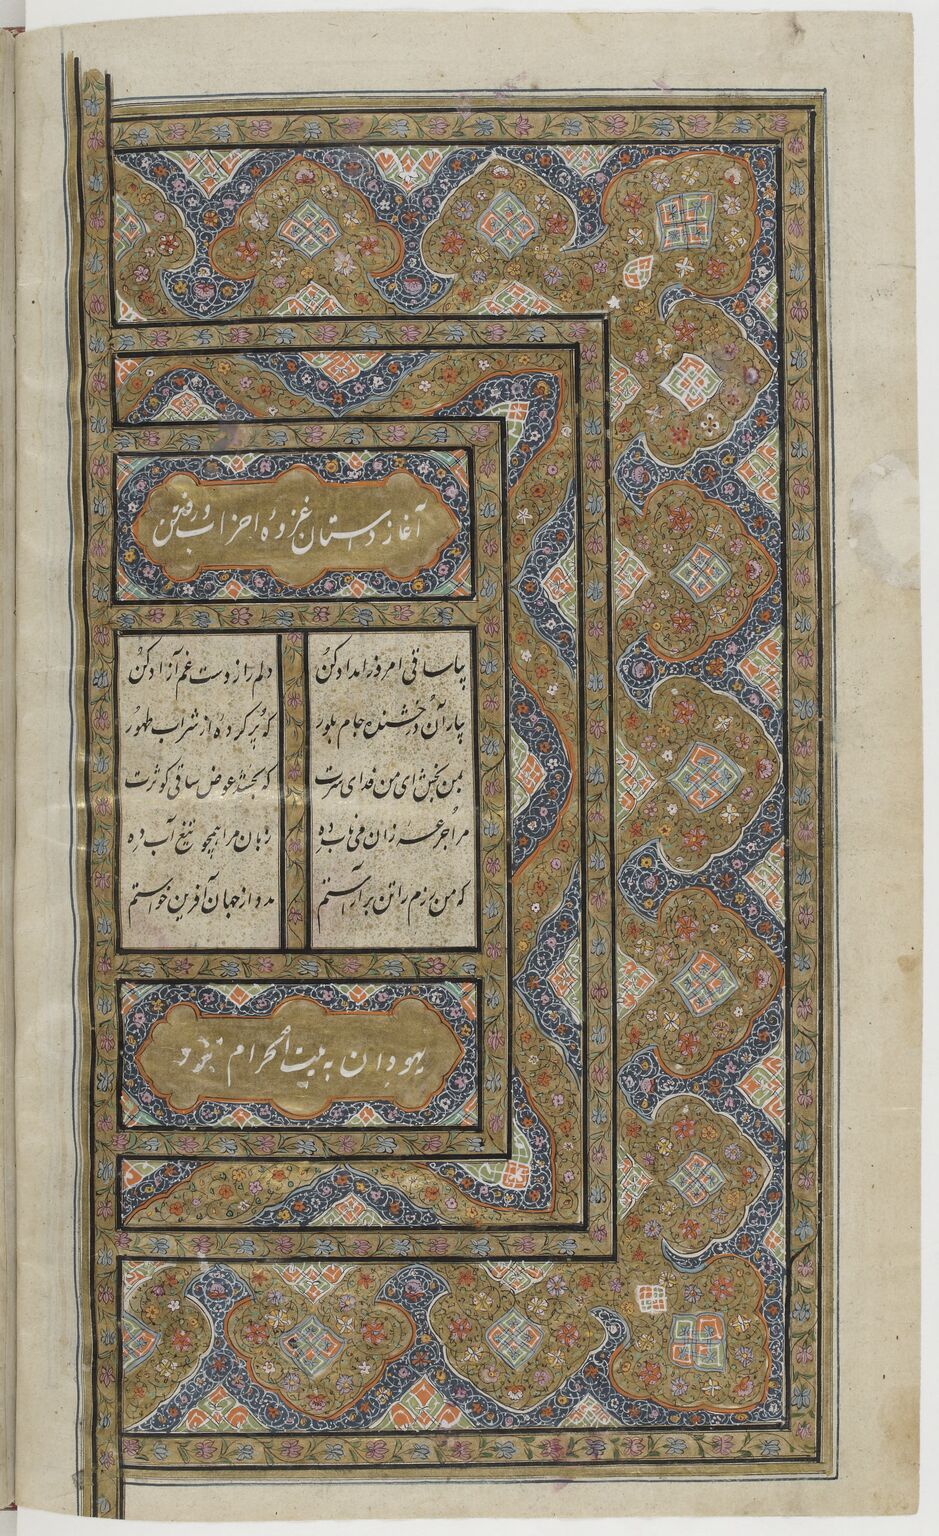 آغاز داستان غزوهٔ احزاب و رفتن
بیا ساقی امروز امداد کن دلم را ز دست غم آزاد کن
بیار آن درخشنده جام بلور که پر کرده از شراب طهور
بمن بخش ای من فدای سرت که بخشد عوض ساقی کوثرت
مرا جرعه زان می ناب ده زبان مرا همچو تیغ آب ده
که من رزم را تن برآراستم مدد از جهان آفرین خواستم
یهودان به بیت الحرام نزد